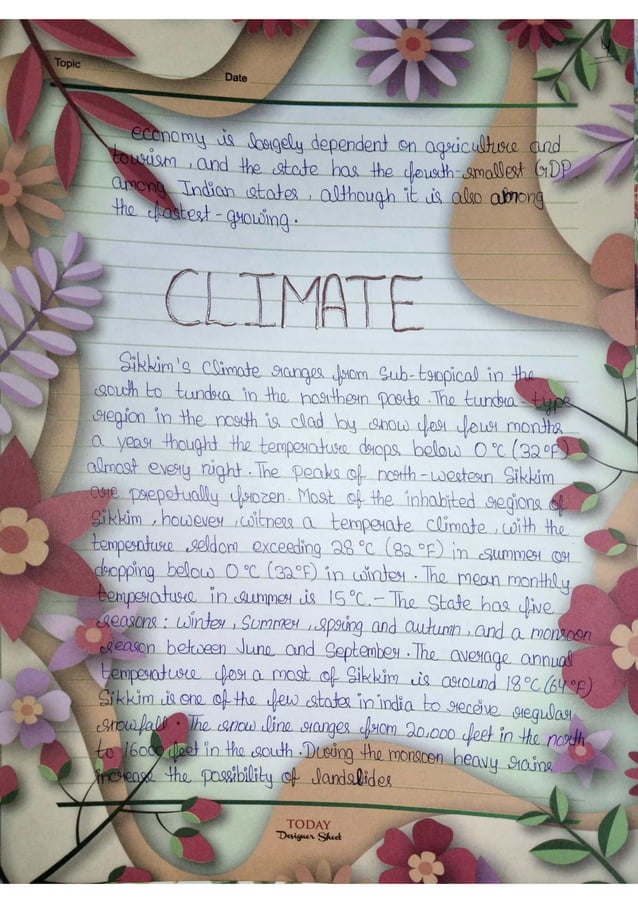 4
Topic
Date
economy is largely dependent on agriculture and
tourism, and the state has the fourth-smallest GDP
among Indian states, although it is also among
the fastest-growing.
CLIMATE
Sikkim's Climate ranges from Sub-tropical in the
south to tundra in the northern parts. The tundra-type
region in the north is clad by snow for four months
a year thought the temperature drops below 0°C (32°F)
almost every night. The peaks of north-western Sikkim
are prepetually frozen. Most of the inhabited regions of
Sikkim, however, witness a temperate climate, with the
temperature seldom exceeding 28°C (82°F) in summer or
dropping below 0°C (32°F) in winter. The mean monthly
temperature in summer is 15°C.- The State has five
seasons: winter, Summer, spring and autumn, and a monsoon
season between June and September. The average annual
temperature for a most of Sikkim is around 18°C (64°F)
Sikkim is one of the few states in india to receive regular
snowfall. The snow line ranges from 20,000 feet in the north
to 16000 feet in the south. During the monsoon heavy rains
increase the possibility of landslides
TODAY
Designer Sheet